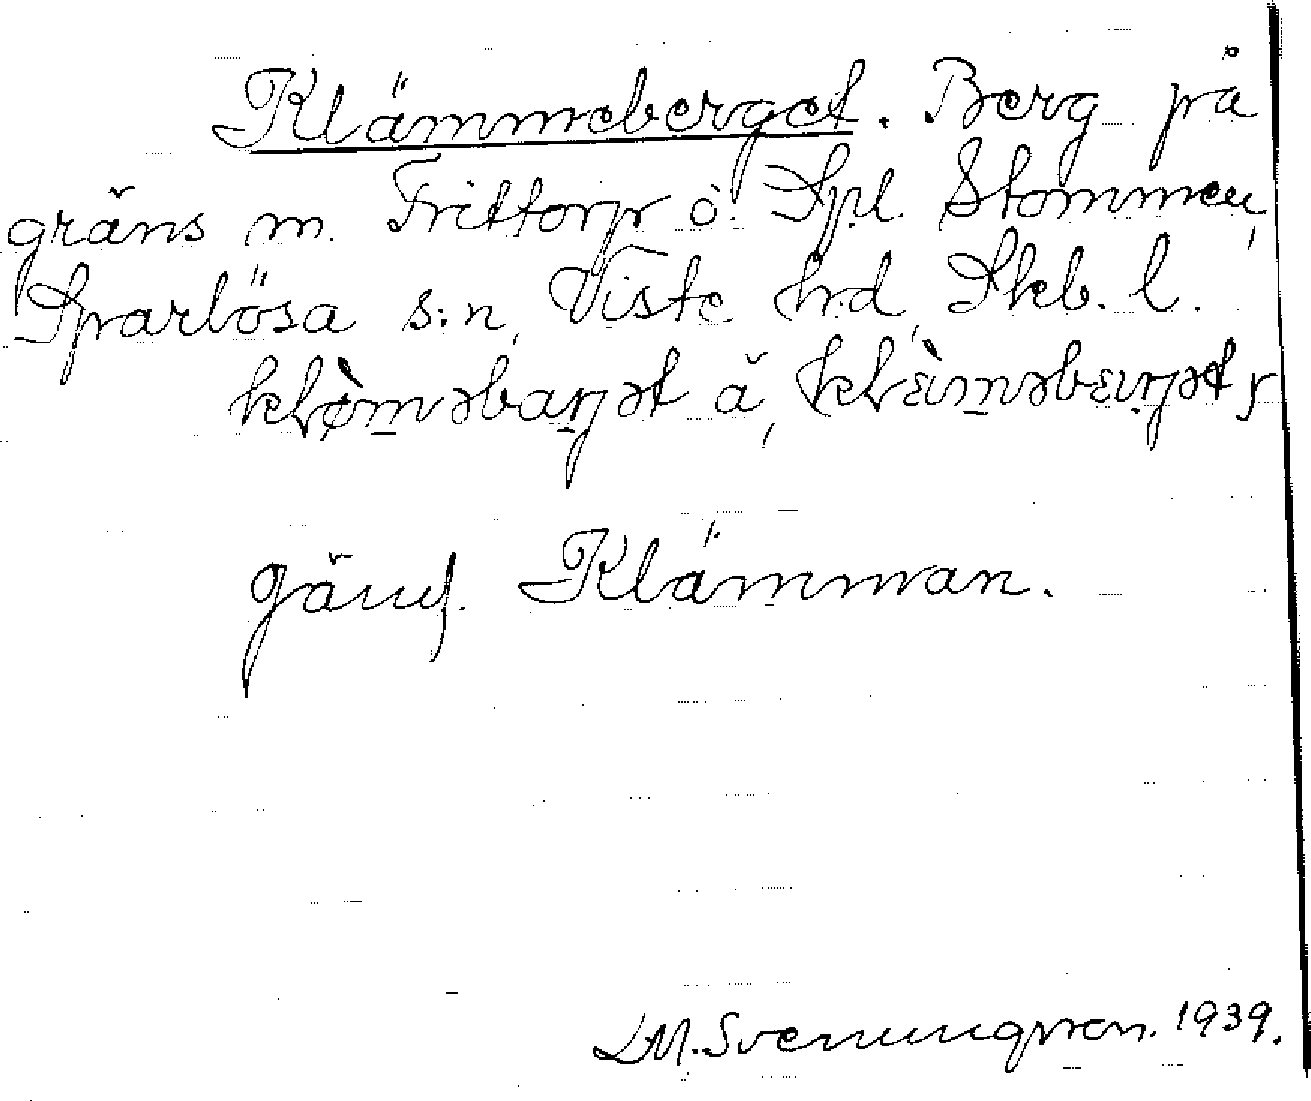 Klämmeberget. Berg på
gräns m. Frittorp o. Spl. Stommen,
Sparlösa s:n, Viste hd, Skb. l.
klø̀mәbaŋәt ä, klɛ̀mәbɛŋәt,
Jämf. Klämman.
LM. Svenungsson. 1939.